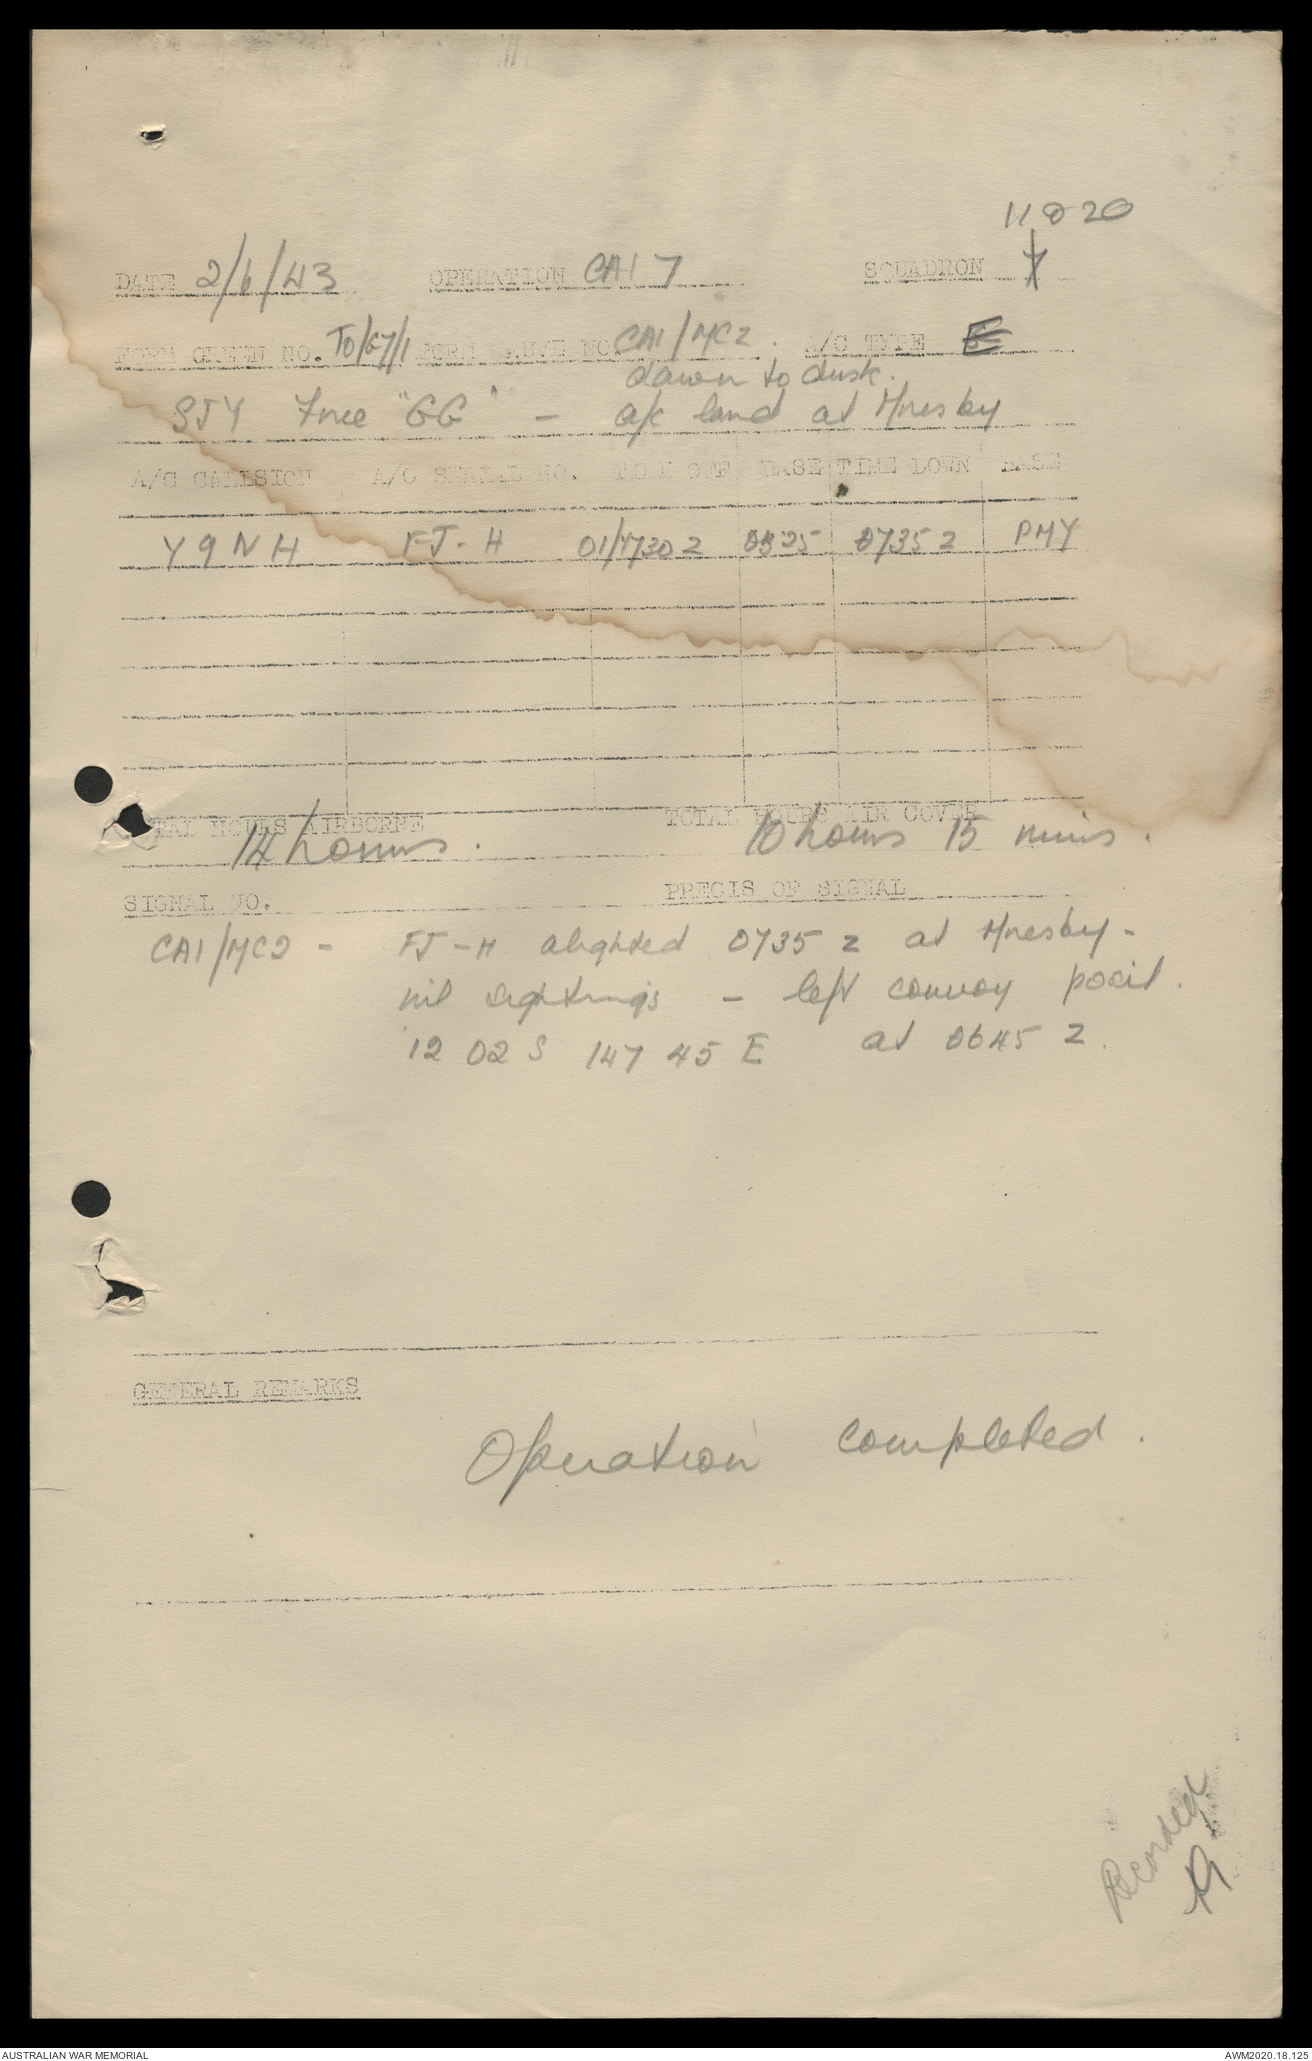 11 & 20
DATE 2/6/43 OPERATION CA1 7 SQUADRON
FORM GREEN NO. TO/G7/1 FORM MAUVE NO. CA1/MC2. A/C TYPE
dawn to dusk.
SJY Force "GG" - a/c land at Moresby
A/C CALLSIGN A/C SERIAL NO. TIME OFF BASE TIME DOWN BASE
Y 9 N H FJ-H 01/1730 Z 0735 Z PMY
TOTAL HOURS AIRBORNE TOTAL HOURS AIR COVER
14 hours. 10 hours 15 mins.
SIGNAL NO. PRECIS OF SIGNAL
CA1/MC2 - FJ-H alighted 0735 Z at Moresby -
nil sightings - left convoy posit.
12 02 S 147 45 E at 0645 Z.
GENERAL REMARKS
Operation completed.
Recorded
AUSTRALIAN WAR MEMORIAL AWM2020.18.125